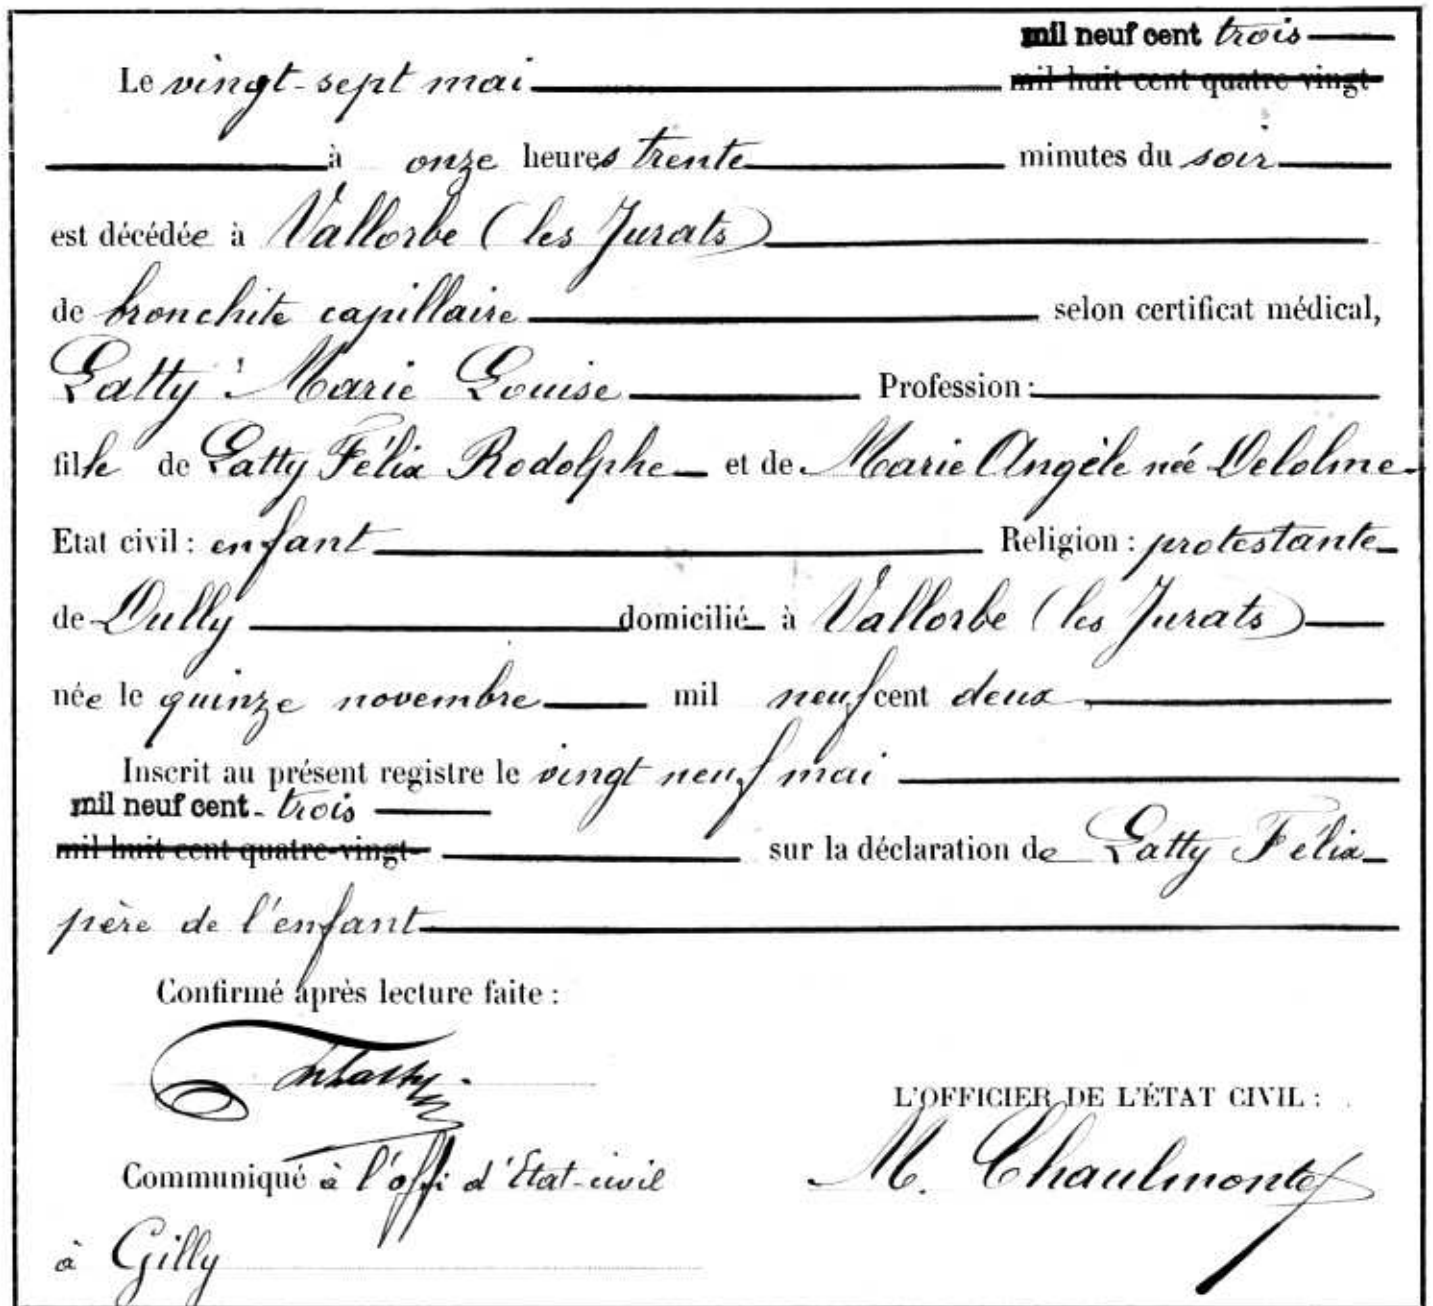 mil neuf cent trois
Le vingt-sept mai mil huit cent quatre-vingt-
à onze heures trente minutes du soir
est décédée à Vallorbe (les Jurats)
de bronchite capillaire selon certificat médical,
Latty Marie Louise Profession :
fille de Latty Félix Rodolphe et de Marie Angèle née Delolme
Etat civil : enfant Religion : protestante
de Dully domicilié à Vallorbe (les Jurats)
née le quinze novembre mil neuf cent deux
Inscrit au présent registre le vingt neuf mai
mil neuf cent trois
mil huit cent quatre-vingt- sur la déclaration de Latty Félix
père de l'enfant
Confirmé après lecture faite :
L'OFFICIER DE L'ÉTAT CIVIL :
Communiqué à l'offi d'Etat-civil M. Chaulmontet
à Gilly